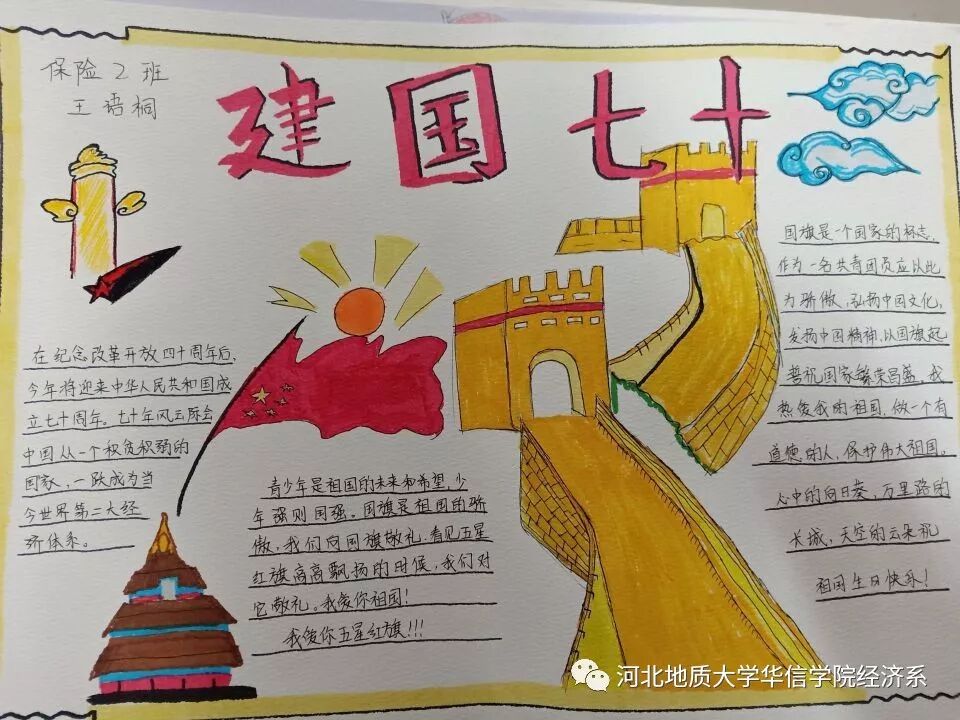 保险2班
王语桐
建国七十
在纪念改革开放四十周年后,
今年将迎来中华人民共和国成
立七十周年。七十年风云际会
中国从一个积贫积弱的
国家,一跃成为当
今世界第二大经
济体系。
青少年是祖国的未来和希望,少
年强则国强。国旗是祖国的骄
傲,我们向国旗敬礼,看见五星
红旗高高飘扬的时候,我们对
它敬礼。我爱你祖国!
我爱你五星红旗!!!
国旗是一个国家的标志,
作为一名共青团员应以此
为骄傲、弘扬中国文化,
发扬中国精神,以国旗起
誓祝国家繁荣昌盛。我
热爱我的祖国,做一个有
道德的人,保护伟大祖国。
心中的向日葵,万里路的
长城,天空的云朵祝
祖国生日快乐!
河北地质大学华信学院经济系